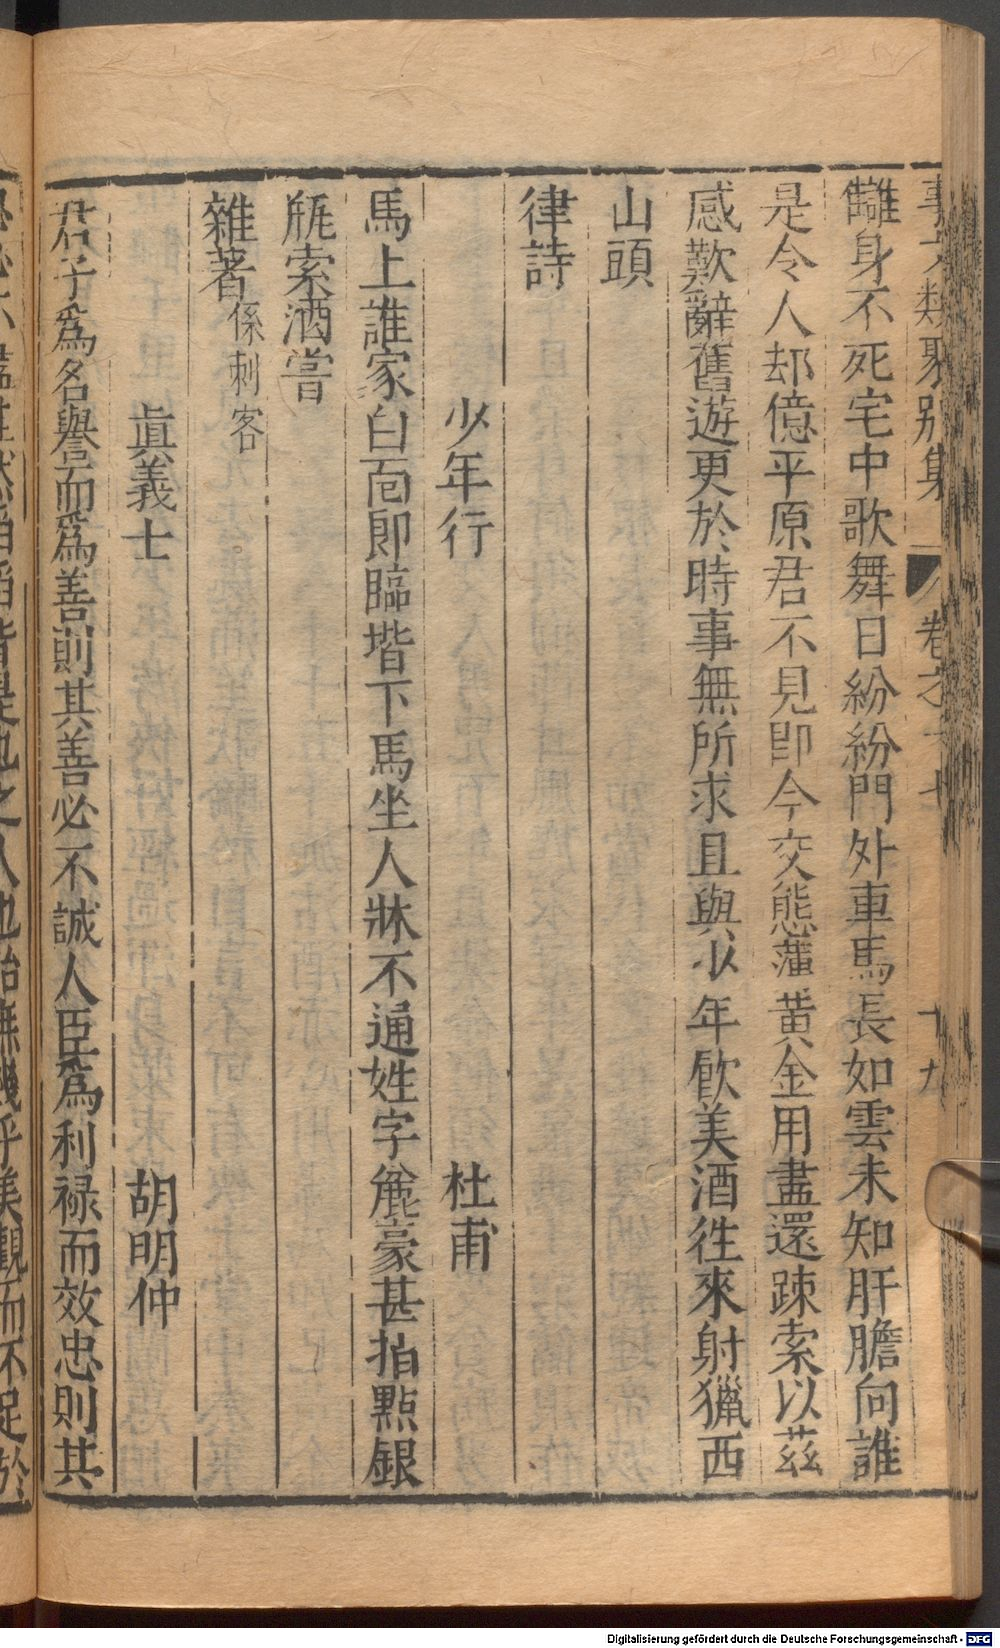 事文類聚別集 卷之十七 十九
讎身不死宅中歌舞日紛紛門外車馬長如雲未知肝膽向誰
是令人却億平原君不見即今交態薄黃金用盡還踈索以茲
感歎辭舊遊更於時事無所求且與少年飲美酒徃來射獵西
山頭
律詩
少年行 杜甫
馬上誰家白面郎臨堦下馬坐人牀不通姓字麄豪甚指點銀
瓶索酒嘗
雜著係刺客
眞義士 胡明仲
君子爲名譽而爲善則其善必不誠人臣爲利禄而效忠則其
也之人也殆無幾乎美觀而不足於
Digitalisierung gefördert durch die Deutsche Forschungsgemeinschaft - DFG